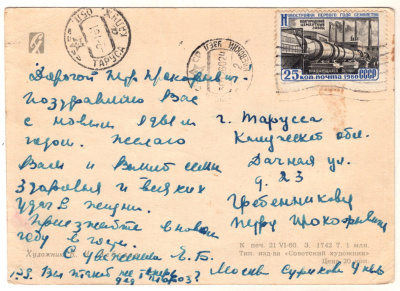 ТАРУСА
НОВОСТРОЙКИ ПЕРВОГО ГОДА СЕМИЛЕТКИ
25 КОП. ПОЧТА 1960 СССР
Дорогой Петр Прокофьевич.
Поздравляю Вас
с новым 1961 м
годом. Желаю
Вам и Вашей семье
здоровья и всяких
удач в жизни.
Приезжайте в новом
году в гости.
С уважением Е. Б.
P.S. Вы
мороз?
г. Тарусса
Калужской обл.
Дачная ул.
д. 23
Гребенникову
Петру Прокофьевичу
Художник
К печ. 21 VI-60. З. 1742 Т 1 млн.
Тип. изд-ва «Советский художник»
Цена 20 коп.
Москва